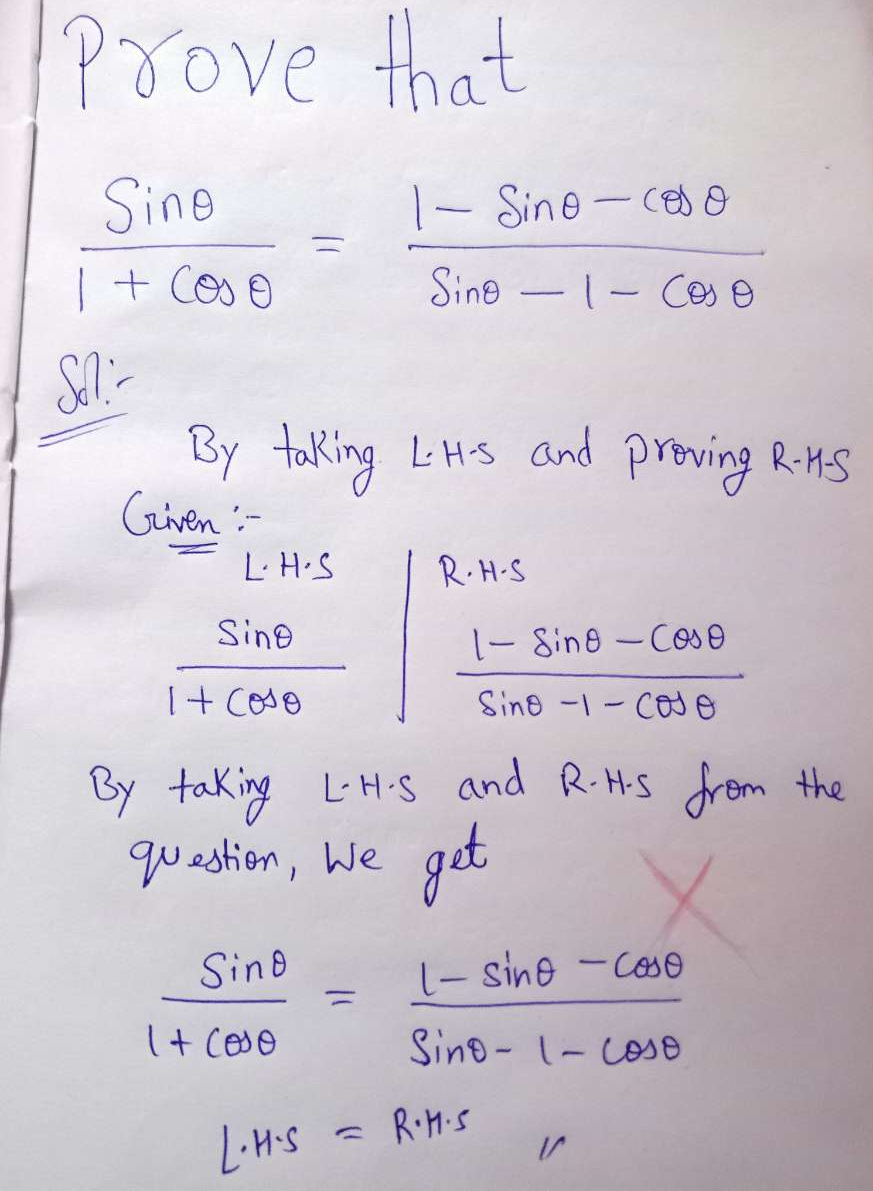 Prove that
Sinθ / 1 + Cosθ = 1 – Sinθ – cosθ / Sinθ – 1 – Cosθ
Sol:-
By taking L.H.S and proving R.H.S
Given :-
L.H.S | R.H.S
Sinθ / 1 + Cosθ | 1 – Sinθ – Cosθ / Sinθ – 1 – Cosθ
By taking L.H.S and R.H.S from the
question, We get
Sinθ / 1 + Cosθ = 1 – Sinθ – Cosθ / Sinθ – 1 – Cosθ
L.H.S = R.H.S